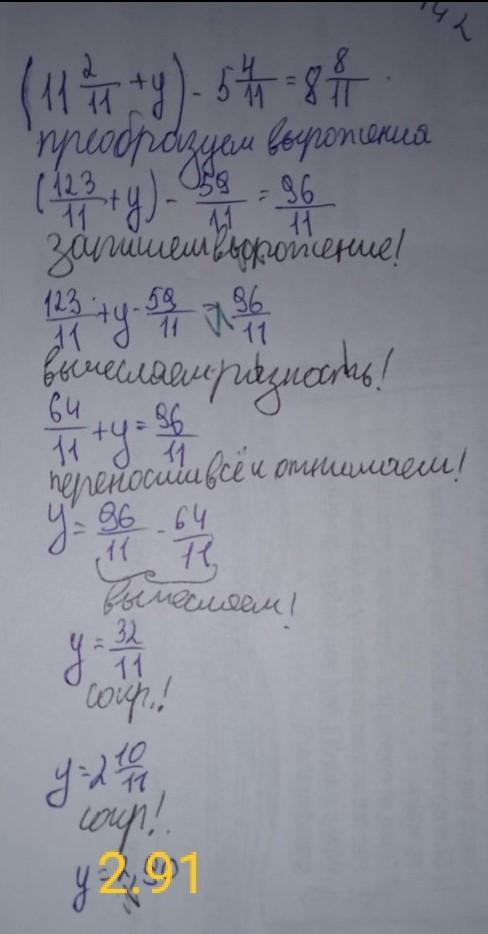 (11 2/11 + y) - 5 4/11 = 8 8/11
преобразуем вырожения
(123/11 + y) - 59/11 = 96/11
запишем вырожение!
123/11 + y - 59/11 = 96/11
вычесляем разность!
64/11 + y = 96/11
переносим всё и отнимаем!
y = 96/11 - 64/11
вычесляем!
y = 32/11
сокр.!
y = 2 10/11
сокр!
y = 2.91